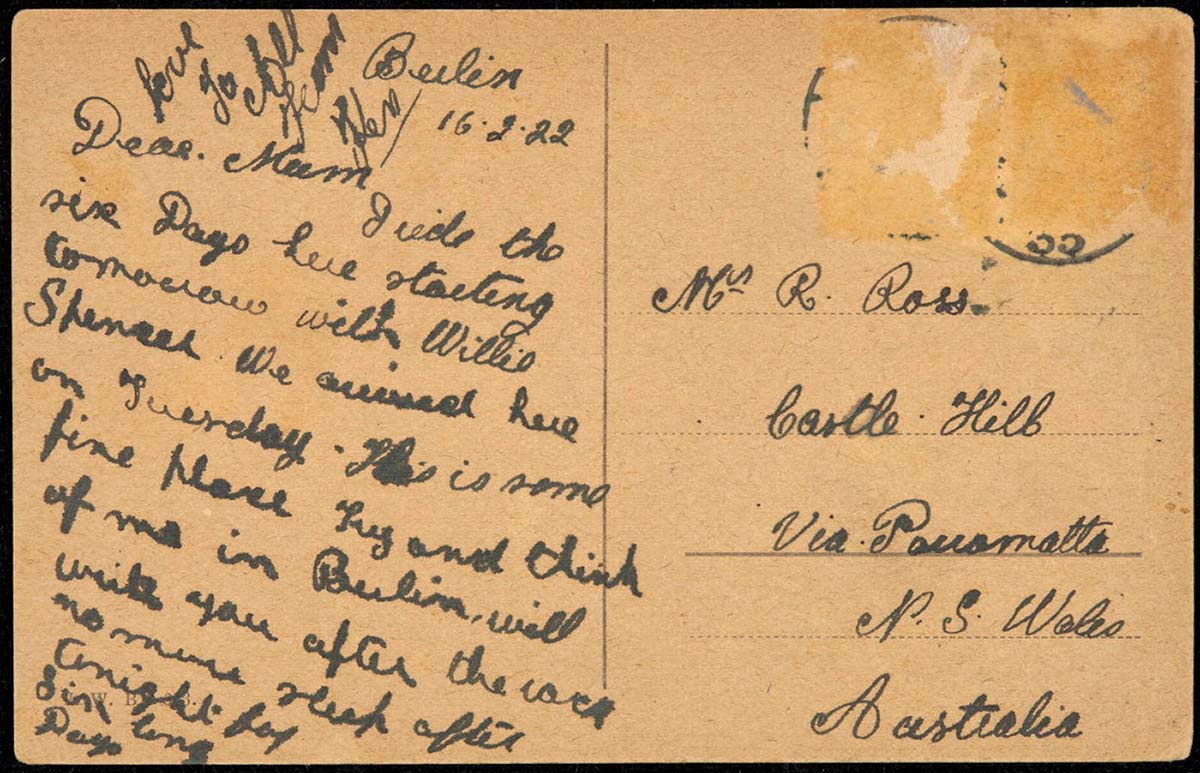 Berlin
16.2.22
Dear. Mum
I ride the
six Days here starting
tomorrow with Willie
Spencer. We arrived here
on Tuesday. This is some
fine place try and think
of me in Berlin, will
write you after the race
no more sleep after
tonight for
Six long
Days
love
to All
from
Ken
Mrs R. Ross.
Castle. Hill
Via. Parramatta
N. S. Wales
Australia